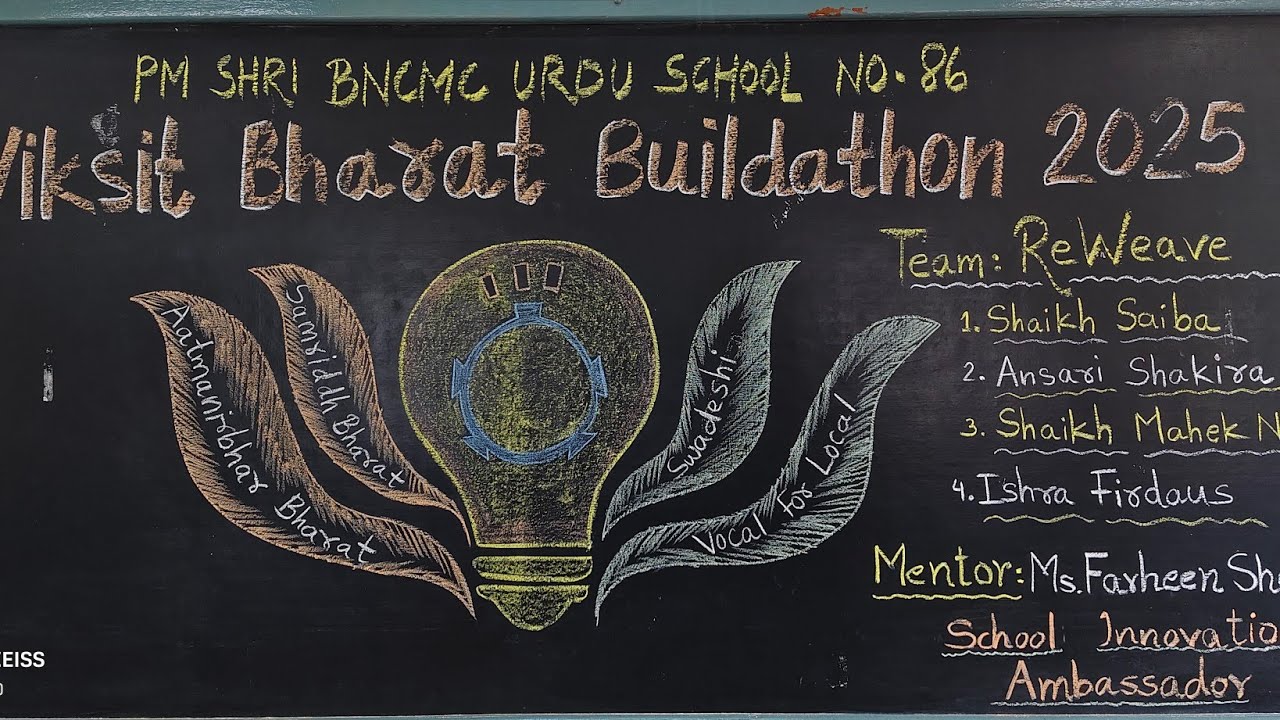 PM SHRI BNCMC URDU SCHOOL NO. 86
Viksit Bharat Buildathon 2025
Team: ReWeave
1. Shaikh Saiba
2. Ansari Shakira
3. Shaikh Mahek N
4. Ishra Firdaus
Mentor: Ms. Farheen Sh
School Innovatio
Ambassador
Aatmanirbhar Bharat
Samriddh Bharat
Swadeshi
Vocal For Local
EISS